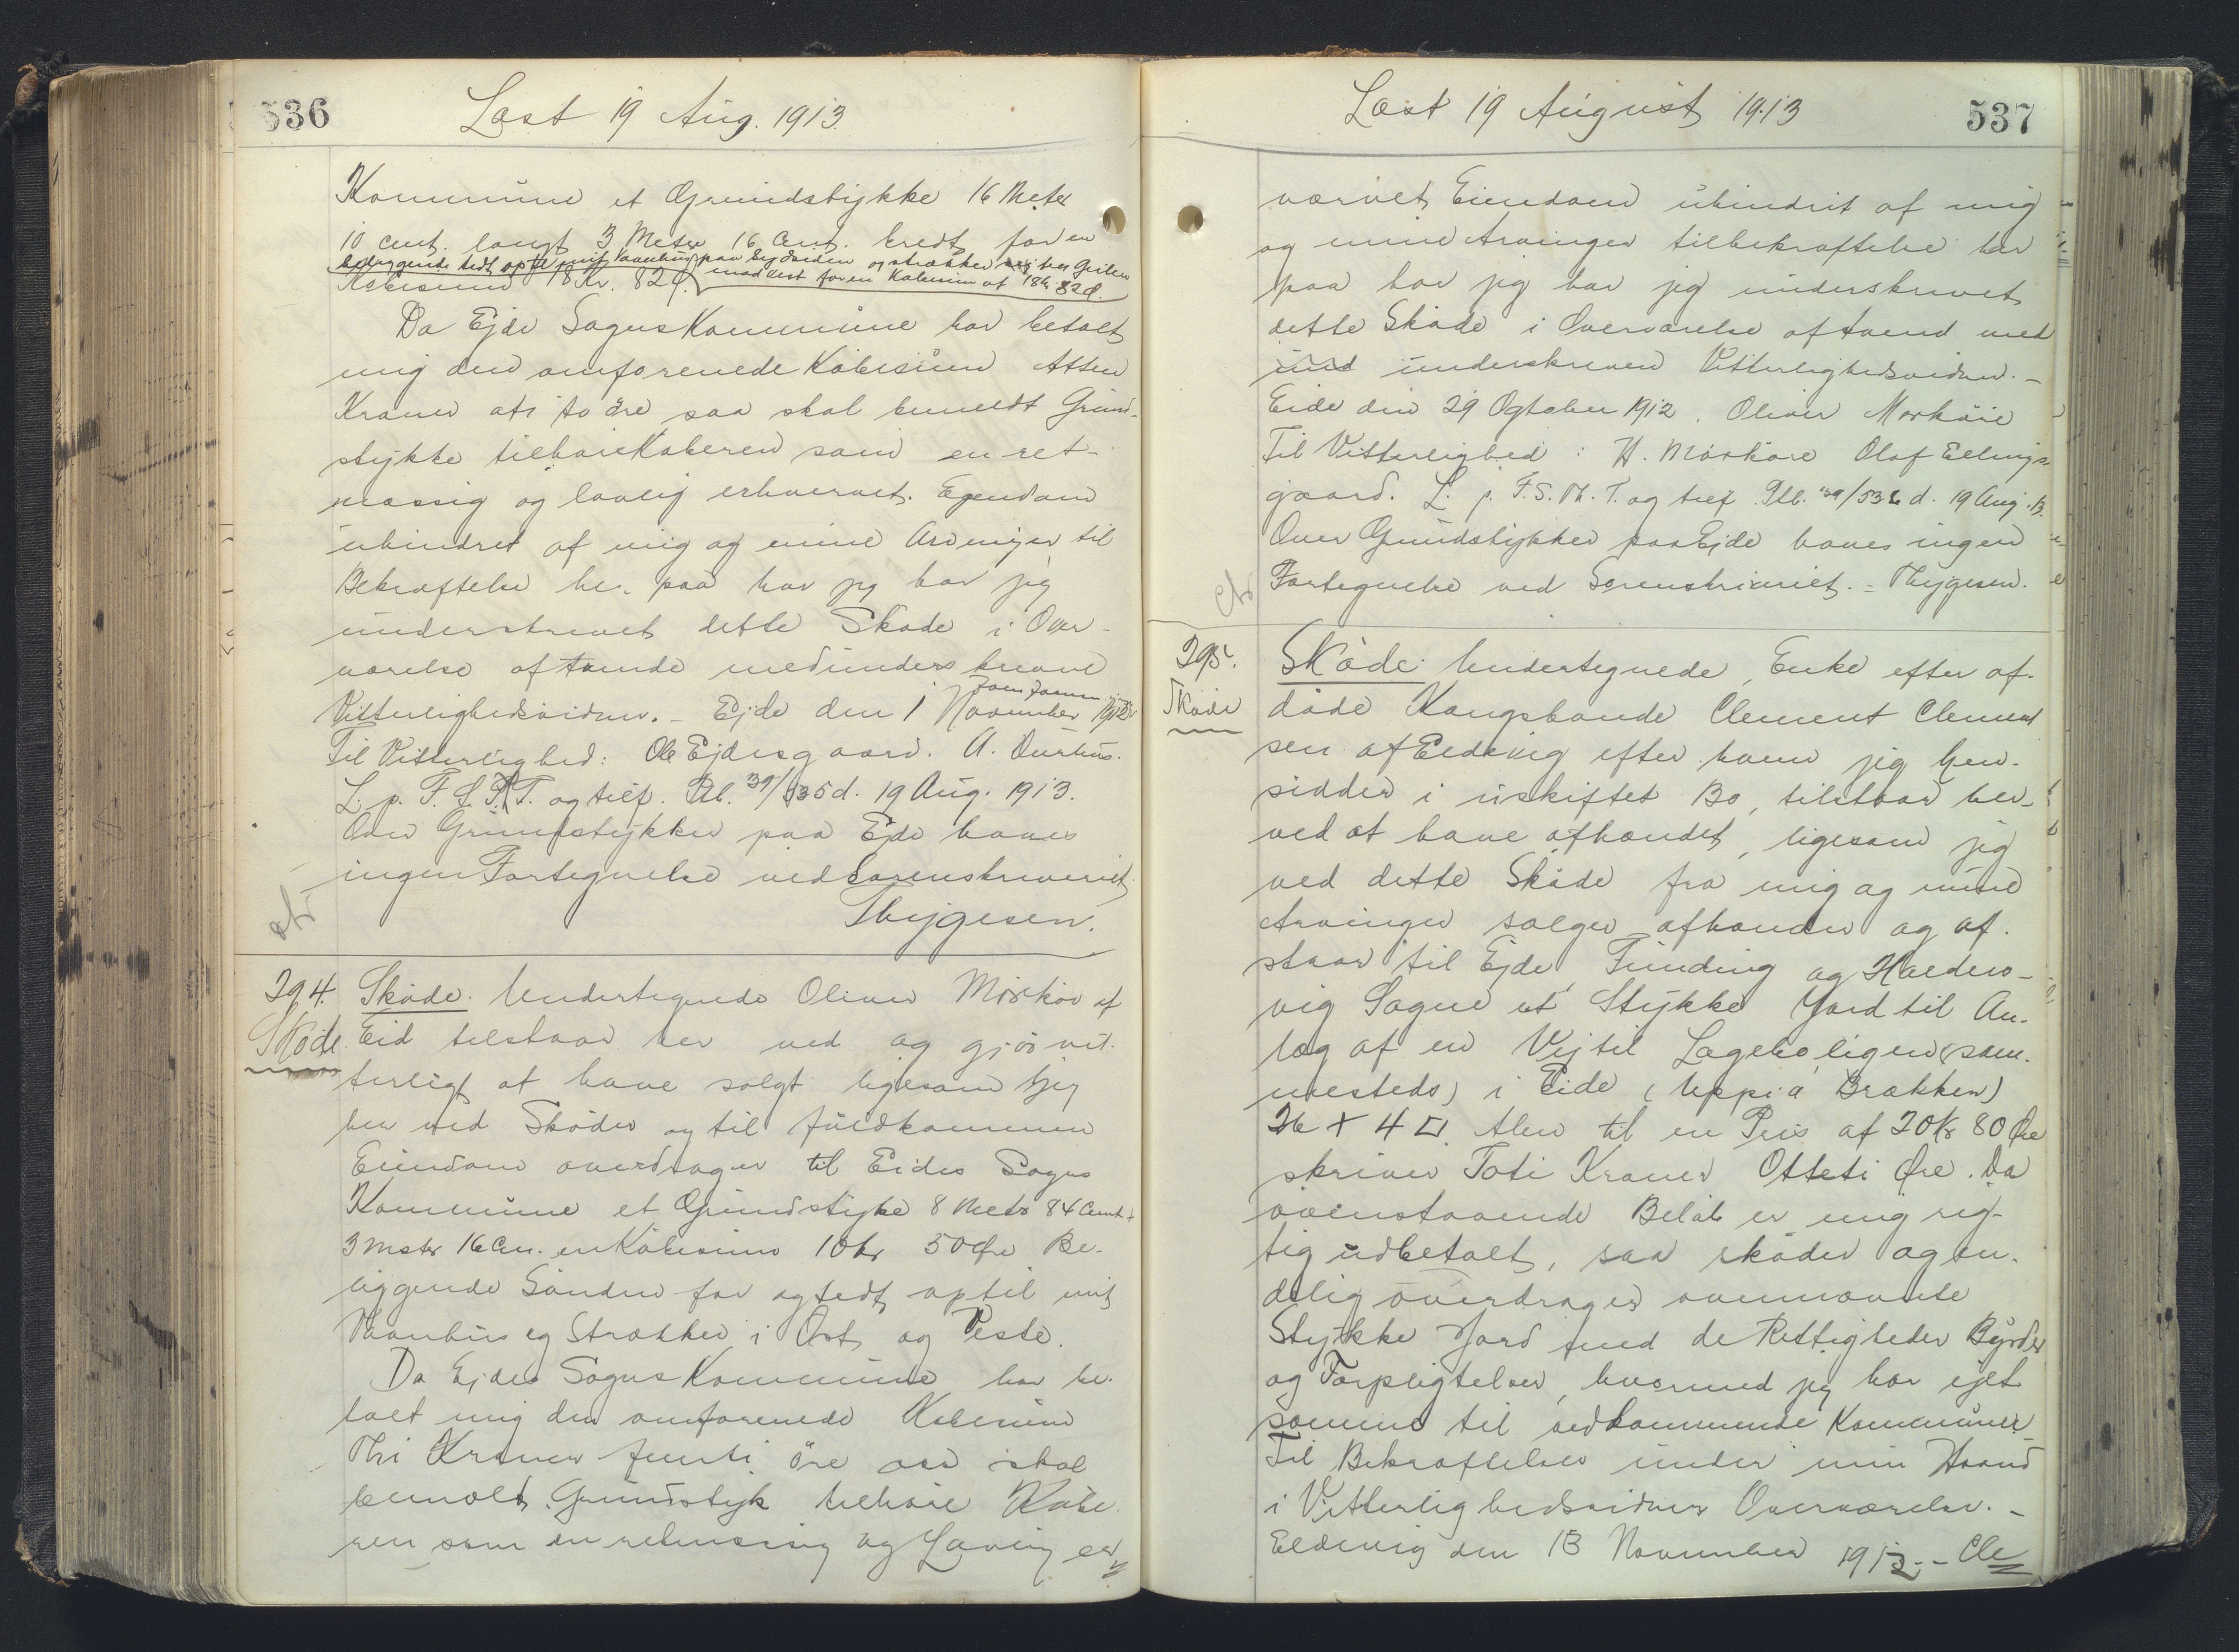 536
Læst 19 Aug. 1913.
Kommune et Grundstykke 16 Meter
10 cent. langt 3 Meter 16 Cent. bredt for en
beliggende tedt op til mit Vaanhus paa Sydsiden og strækker sig hen Geilen
Købesum 18 Kr. 82 Ø. mod Vest for en Købesum af 18 kr 82 Ø.
Da Ejde Sognskommune har betalt
mig den omforenede Købesum Atten
Kroner oti to øre saa skal bemeldt Grund-
stykke tilhøre Køberen som en ret-
mæssig og lovlig erhvervet Ejendom
uhindret af mig og mine Arvinger til
Bekræftelse her paa har jeg har jeg
underskrevet dette Skøde i Over-
værelse af tvende medunderskrevne
Vitterlighedsvidner. – Ejde den 1 November 1912
Til Vitterlighed: Ole Ejdesgaard. A. Durhus.
L. p. F. S. Th. T. og tilf. Plb. 39/535 d. 19 Aug. 1913.
Over Grundstykker paa Ejde haves
ingen Fortegnelse ved Sorenskriveriet.
Thygesen.
294. Skøde. Undertegnede Oliver Mørkøre af
Skøde. Eid tilstaar her ved og gjør vit-
terligt at have solgt ligesom jeg
her ved Skøder og til fuldkommen
Eiendom overdrager til Eides Sogns
Kommune et Grundstyke 8 Metr 84 Cent. +
3 Metr 16 Cen. en Købesum 10 kr 50 Øre Be-
liggende Sønden for og tedt optil mit
Vaanhus og Strækker i Øst og Veste.
Da Ejdes Sogns Kommune har be-
talt mig den omforenede Købesum
Thi Kroner femti øre saa skal
bemeldt Grundstyk tilhøre Købe-
ren som en retmæssig og Lovlig er
537
Læst 19 August 1913
værvet Eiendom uhindrit af mig
og mine Arvinger tilbekræftelse her
paa har jeg har jeg underskrevet
dette Skøde i Overværelse af tvend med
und underskreven Vitterlighedsvidner. –
Eide din 29 Ogtober 1912. Oliver Morkøre
Til Vitterlighed: H. Mørkøre Olaf Ellings-
gaard. L. p. F. S. Th. T. og tilf. Plb. 39/536 d. 19 Aug. 13.
Over Grundstykker paa Ejde haves ingen
Fortegnelse ved Sorenskriveriet. = Thygesen.
295. Skøde. Undertegnede, Enke efter af-
Skøde døde Kongsbonde Clement Clement
sen af Eldevig efter hvem jeg hen-
sidder i uskiftet Bo, tilstaar her-
ved at have afhændet, ligesom jeg
ved dette Skøde fra mig og mine
Arvinger sælger afhænder og af-
staar til Ejde, Funding og Halders-
vig Sogne et Stykke Jord til An-
læg af en Vej til Lægeboligen (sam-
mesteds) i Eide (Uppi á Brekken)
26 + 4 □ Alen til en Pris af 20 kr 80 Øre
skriver Toti Kroner Otteti Øre. Da
ovenstaaende Beløb er mig rig-
tig udbetalt, saa skøder og en-
delig overdrages ovennævnte
Stykke Jord med de Rettigheder Byrder
og Forpligtelser, hvormed jeg har ejet
samme til vedkommende Kommuner
Til Bekræftelses under min Haand
i Vitterlighedsvidners Overværelse. –
Eldevig den 13 November 1912. – Cle